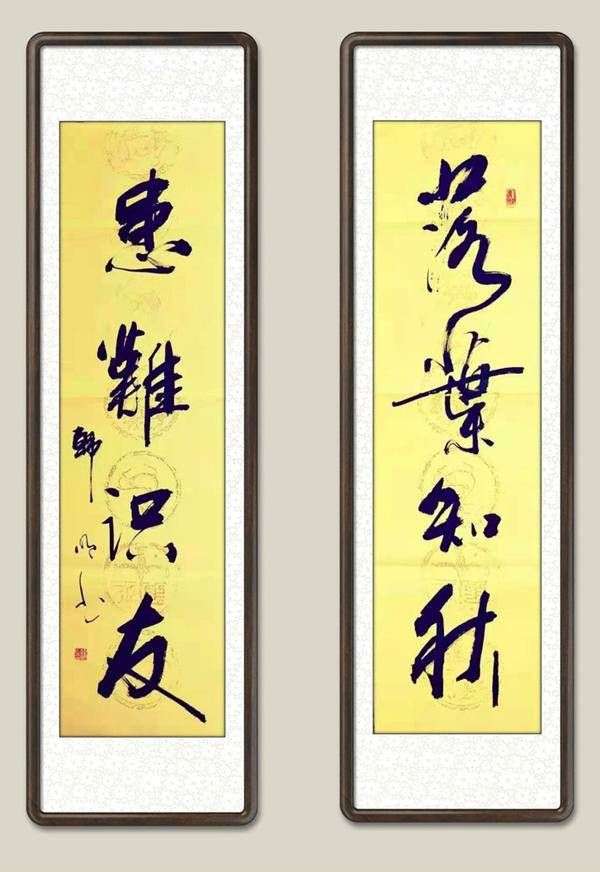 落葉知秋
患難识友
韩